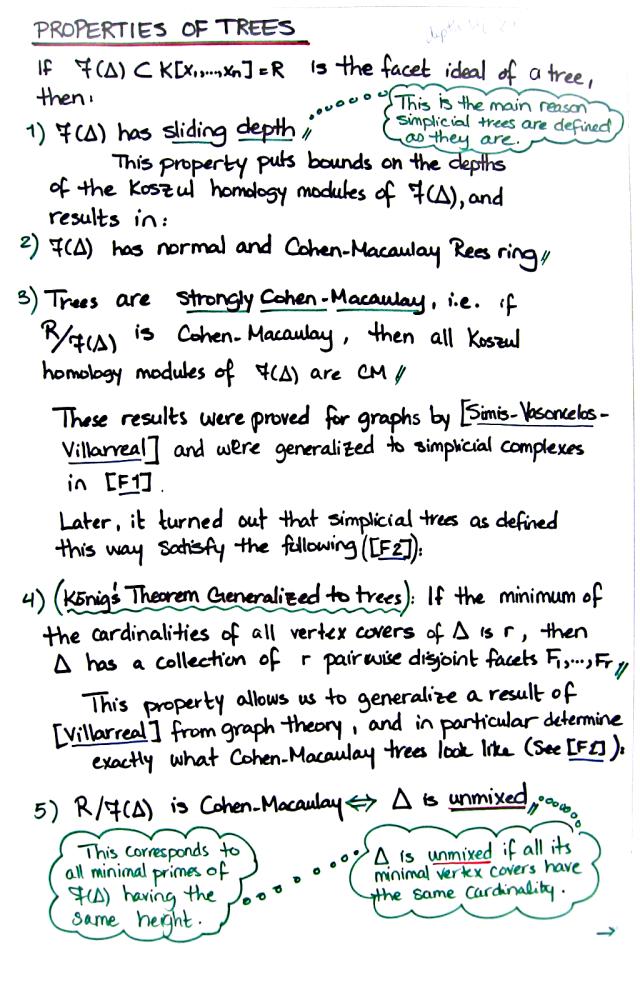 PROPERTIES OF TREES
If 𝓕(Δ) ⊂ K[x₁,...,xₙ] = R is the facet ideal of a tree,
then:
This is the main reason
simplicial trees are defined
as they are.
1) 𝓕(Δ) has sliding depth //
This property puts bounds on the depths
of the Koszul homology modules of 𝓕(Δ), and
results in:
2) 𝓕(Δ) has normal and Cohen-Macaulay Rees ring //
3) Trees are strongly Cohen-Macaulay, i.e. if
R/𝓕(Δ) is Cohen-Macaulay, then all Koszul
homology modules of 𝓕(Δ) are CM //
These results were proved for graphs by [Simis-Vasoncelos-
Villarreal] and were generalized to simplicial complexes
in [F1].
Later, it turned out that simplicial trees as defined
this way satisfy the following ([F2]):
4) (König's Theorem Generalized to trees): If the minimum of
the cardinalities of all vertex covers of Δ is r, then
Δ has a collection of r pairwise disjoint facets F₁,...,Fᵣ //
This property allows us to generalize a result of
[Villarreal] from graph theory, and in particular determine
exactly what Cohen-Macaulay trees look like (See [F2]):
5) R/𝓕(Δ) is Cohen-Macaulay ⟺ Δ is unmixed //
This corresponds to
all minimal primes of
𝓕(Δ) having the
same height.
Δ is unmixed if all its
minimal vertex covers have
the same cardinality.
→